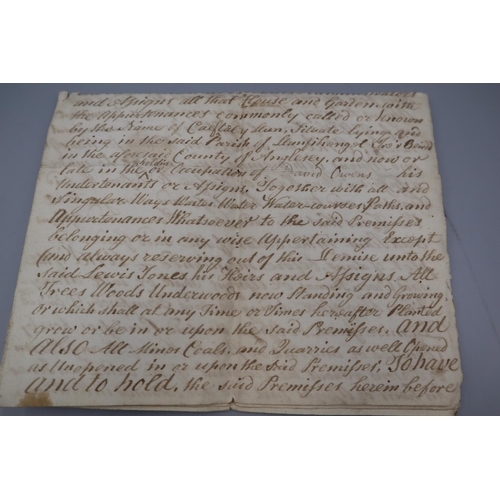 and Assigns all that House and Garden with
the Appurtenances commonly called or known
by the Name of Lleyn, Situate lying and
being in the said Parish of Llanfihangel
in the aforesaid County of Anglesey, and now or
late in the Occupation of David Owens his
Undertenants or Assigns, Together with all and
Singular Ways Water Water-courses Paths, and
Appurtenances Whatsoever to the said Premisses
belonging or in any wise Appertaining Except
(and always reserving out of this Demise unto the
Said Lewis Jones his Heirs and Assigns, All
Trees Woods Underwoods now Standing and Growing
or which shall at any Time or Times hereafter Planted
grow or be in or upon the said Premisses, and
also All Mines Coals, and Quarries as well Opened
as Unopened in or upon the said Premisses, To have
and to hold, the said Premisses herein before